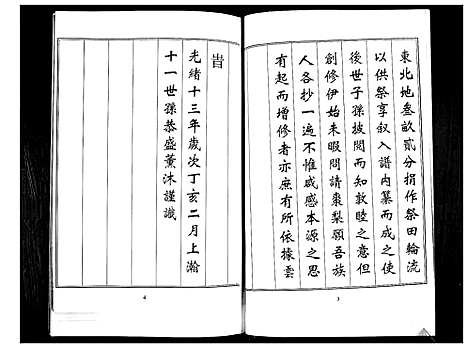 東北地叁畝貳分捐作祭田輪流
以供祭享叙入譜内纂而成之使
後世子孫披閱而知敦睦之意但
創修伊始未暇問請棗梨願吾族
人各抄一遍不惟感本源之思
有起而增修者亦庶有所依據雲
3
旹
光緒十三年歲次丁亥二月上瀚
十一世孫恭盛薰沐謹識
4